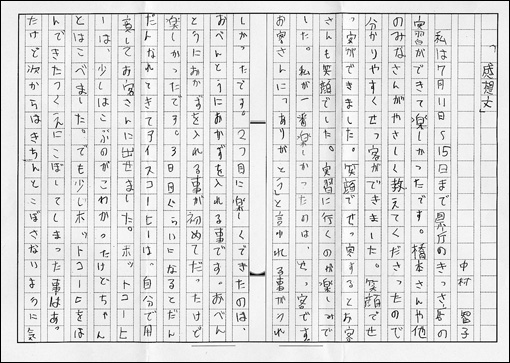 「感想文」
中村 智子
私は7月11日~15日まで県庁のきっさ季の
実習ができて楽しかったです。橋本さんや他
のみなさんがやさしく教えてくださったので
分かりやすくせっ客ができました。笑顔でせ
っ客ができました。笑顔でせっ客するとお客
さんも笑顔でした。実習に行くのが楽しみで
した。私が一番楽しかったのは、せっ客です。
お客さんに「ありがとう」と言われる事がうれ
しかったです。2つ目に楽しくできたのは、
おべんとうにおかずを入れる事です。おべん
とうにおかずを入れる事が初めてだったけど
楽しかったです。3日目ぐらいになるとだん
だんなれてきてアイスコーヒーは、自分で用
意してお客さんに出せました。ホットコーヒ
ーは、少しはこぶのがこわかったけどちゃん
とはこべました。でも少しホットコーヒーをは
んできたつくえにこぼしてしまった事は
たけど次からはきちんとこぼさないように気